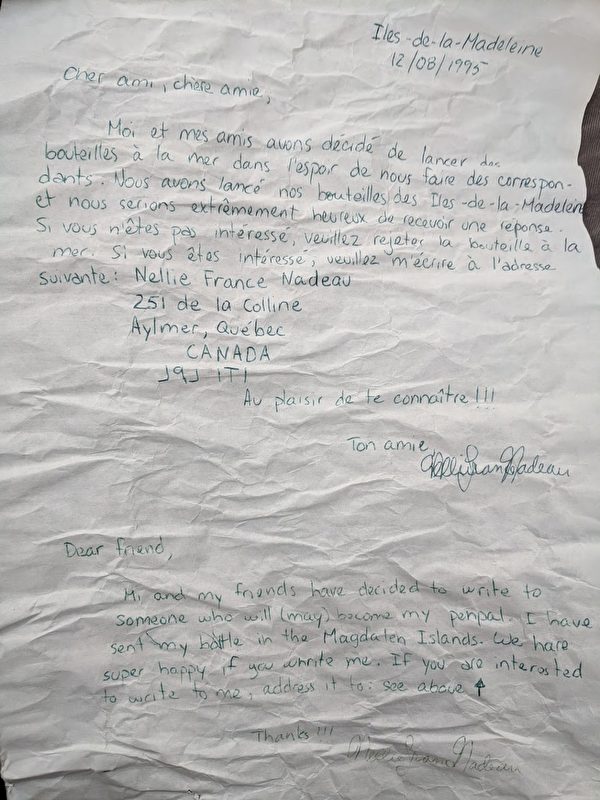 Iles-de-la-Madeleine
12/08/1995
Cher ami, chère amie,
Moi et mes amis avons décidé de lancer des
bouteilles à la mer dans l'espoir de nous faire des correspon-
dants. Nous avons lancé nos bouteilles des Iles-de-la-Madeleine
et nous serions extrêmement heureux de recevoir une réponse.
Si vous n'êtes pas intéressé, veuillez rejeter la bouteille à la
mer. Si vous êtes intéressé, veuillez m'écrire à l'adresse
suivante: Nellie France Nadeau
251 de la Colline
Aylmer, Québec
CANADA
J9J 1T1
Au plaisir de te connaître!!!
Ton amie,
Nellie France Nadeau
Dear friend,
Mi and my friends have decided to write to
someone who will (may) become my penpal. I have
sent my bottle in the Magdalen Islands. We hare
super happy if you whrite me. If you are interosted
to write to me, address it to: see above ↑
Thanks!!!
Nellie France Nadeau